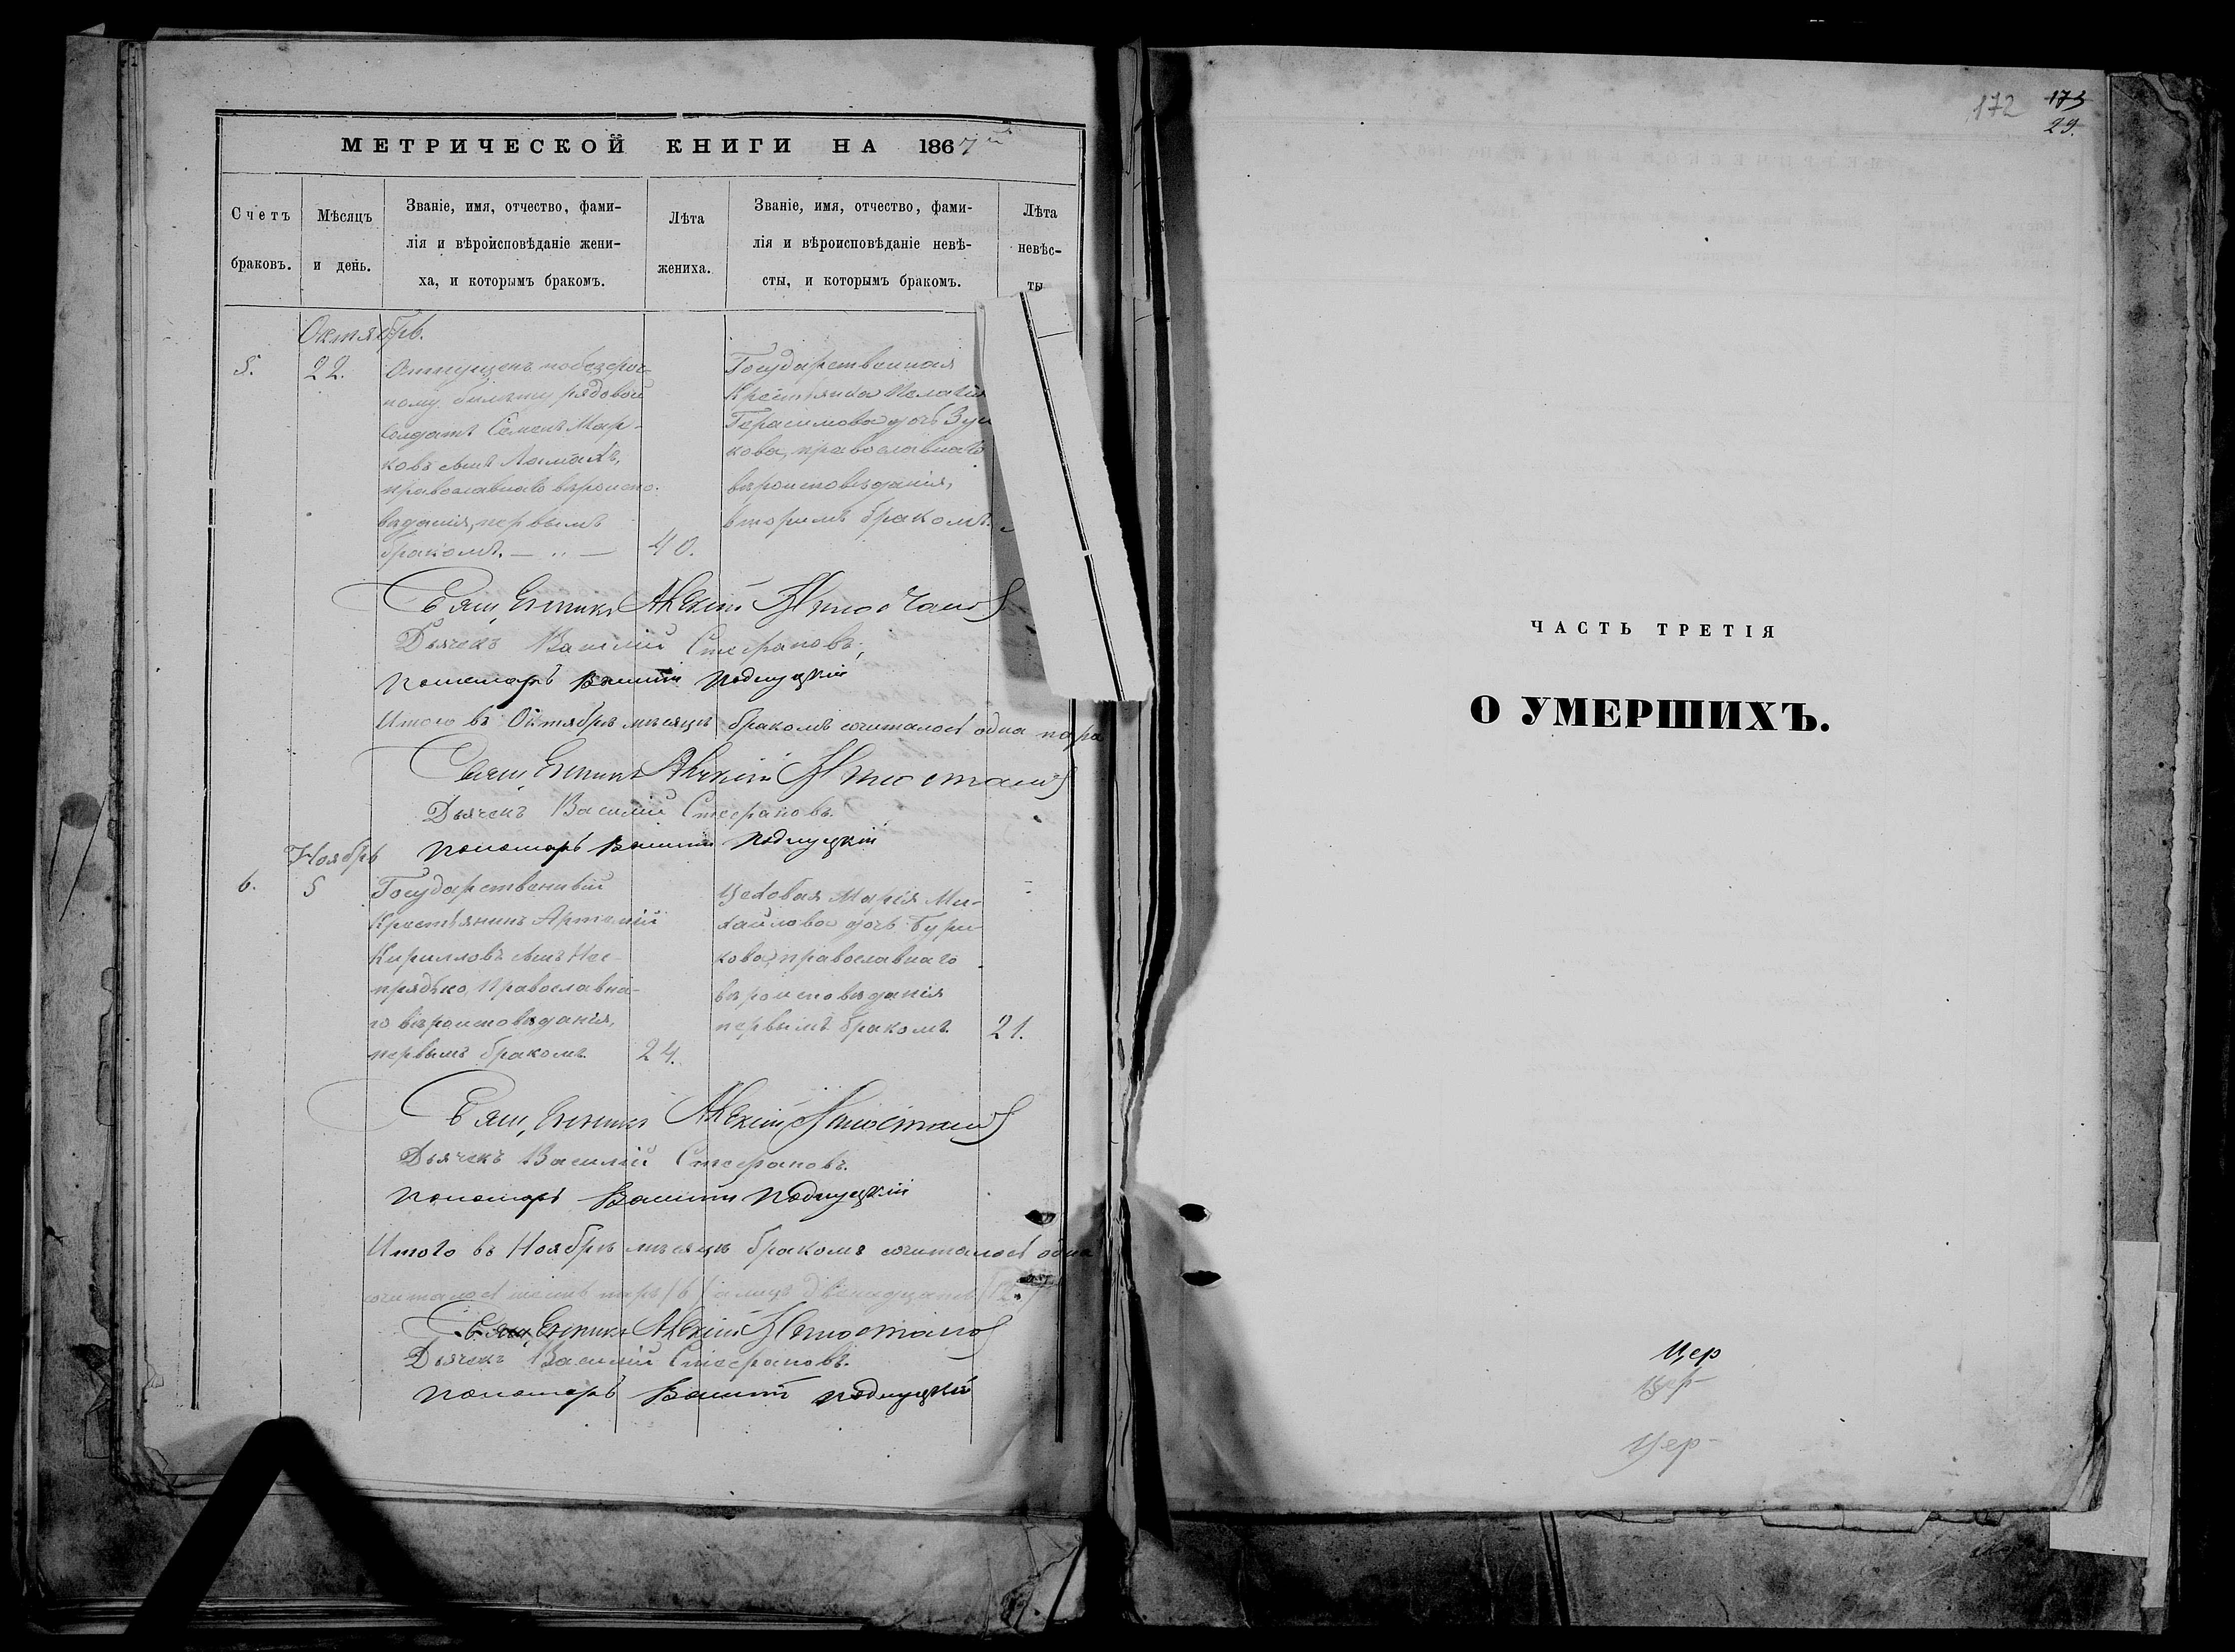 МЕТРИЧЕСКОЙ КНИГИ НА 1867
Счетъ браковъ.
Мѣсяцъ и день.
Званіе, имя, отчество, фами-
лія и вѣроисповѣданіе жени-
ха, и которымъ бракомъ.
Лѣта
жениха.
Званіе, имя, отчество, фами-
лія и вѣроисповѣданіе невѣ-
сты, и которымъ бракомъ.
Лѣта
невѣс-
ты
Октябрь.
5.
22.
Отпущенъ по безсроч-
ному билету рядовой
солдатъ Семенъ Мар-
ковъ сынъ
православнаго вѣроиспо-
вѣданія, первымъ
бракомъ.
40.
Государственная
Крестьянка Пелагія
Герасимова дочь
кова, православнаго
вѣроисповѣданія,
вторымъ бракомъ.
Священникъ Алексій
Дьячекъ Василій Стефановъ.
Пономарь Василій
Итого въ Октябрѣ мѣсяцѣ бракомъ сочиталось одна пара
Священникъ Алексій
Дьячекъ Василій Стефановъ.
Пономарь Василій
Ноябрь
6.
5
Государственный
Крестьянинъ Артемій
Кирилловъ сынъ Нес-
прядько, Православна-
го вѣроисповѣданія,
первымъ бракомъ.
24.
Цеховая Марія Ми-
хайлова дочь Бури-
кова, православнаго
вѣроисповѣданія
первымъ бракомъ.
21.
Священникъ Алексій
Дьячекъ Василій Стефановъ.
Пономарь Василій
Итого въ Ноябрѣ мѣсяцѣ бракомъ сочиталось одна
сочиталось шесть паръ (6) а лицъ двенадцать (12.)
Священникъ Алексій
Дьячекъ Василій Стефановъ.
Пономарь Василій
172 173
29.
ЧАСТЬ ТРЕТІЯ
О УМЕРШИХЪ.
Цер
Цер-
Цер-